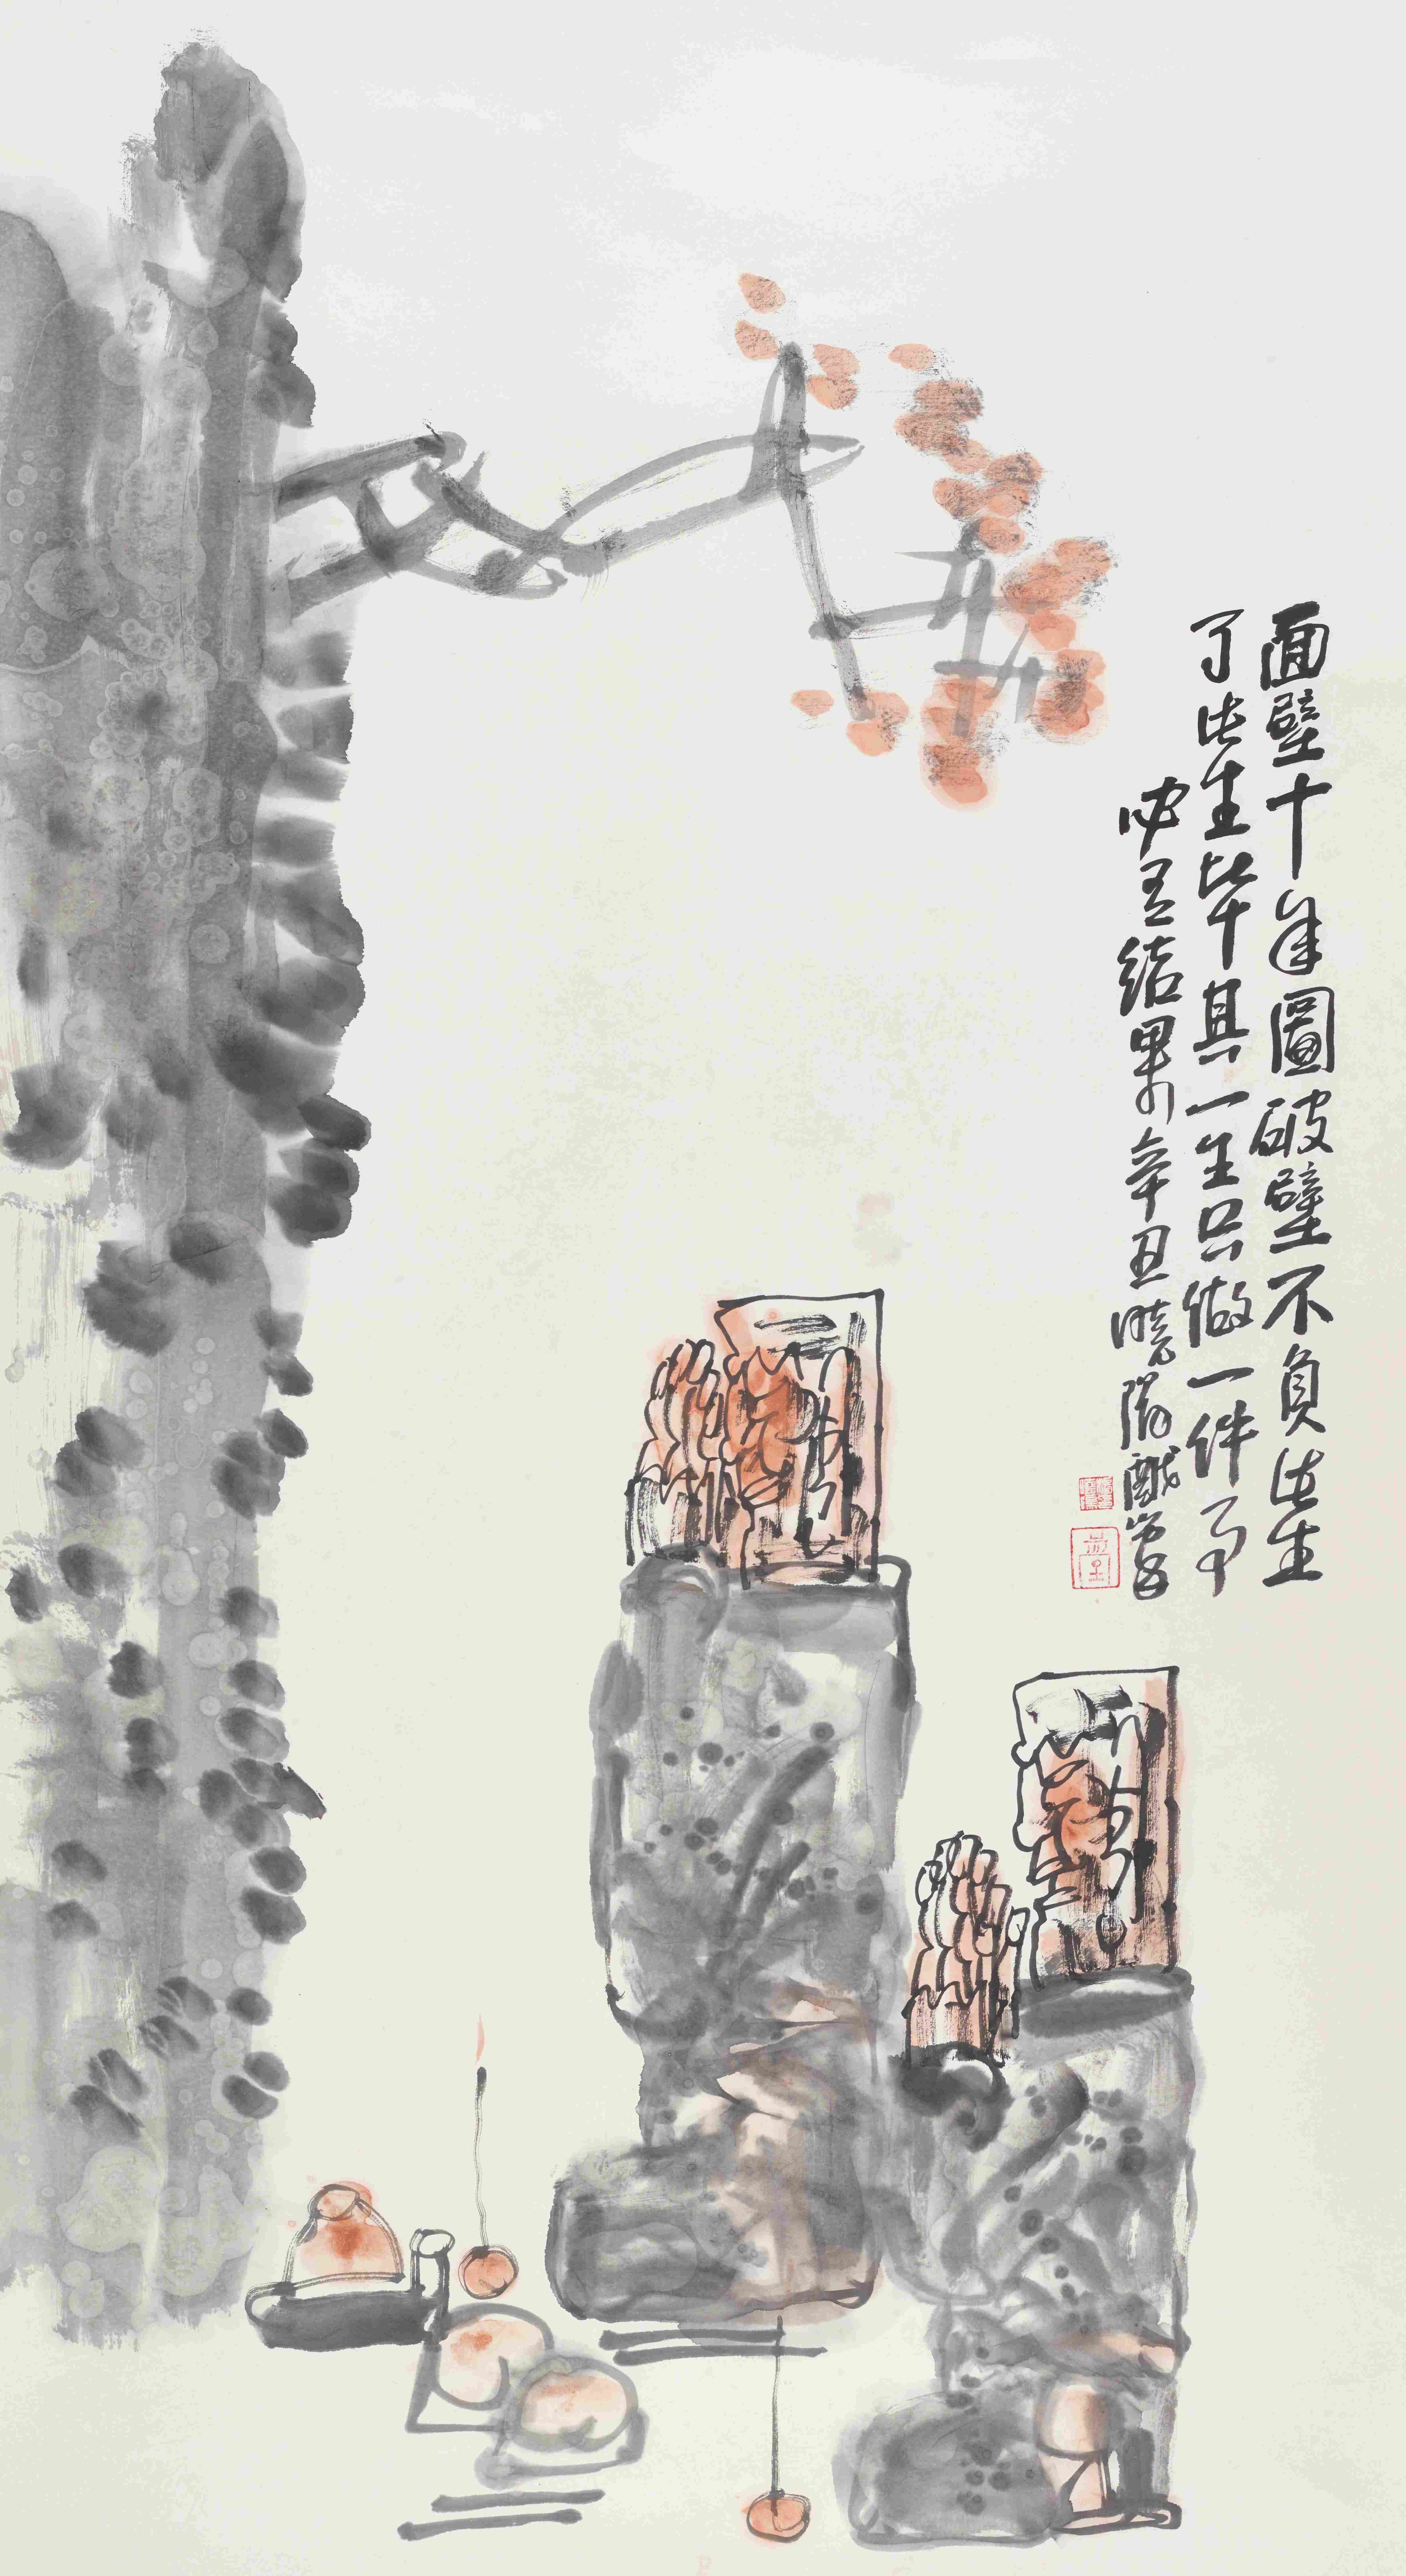 面壁十年圖破壁不負此生
了此生毕其一生只做一件事
必有结果 辛丑曉陽